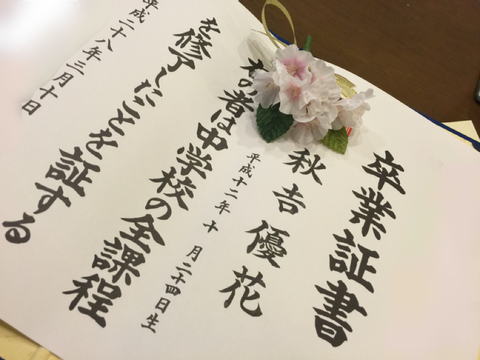 卒業証書
秋吉優花
平成十二年十月二十四日生
の者は中学校の全課程
を修了したことを証する
平成二十八年三月十日